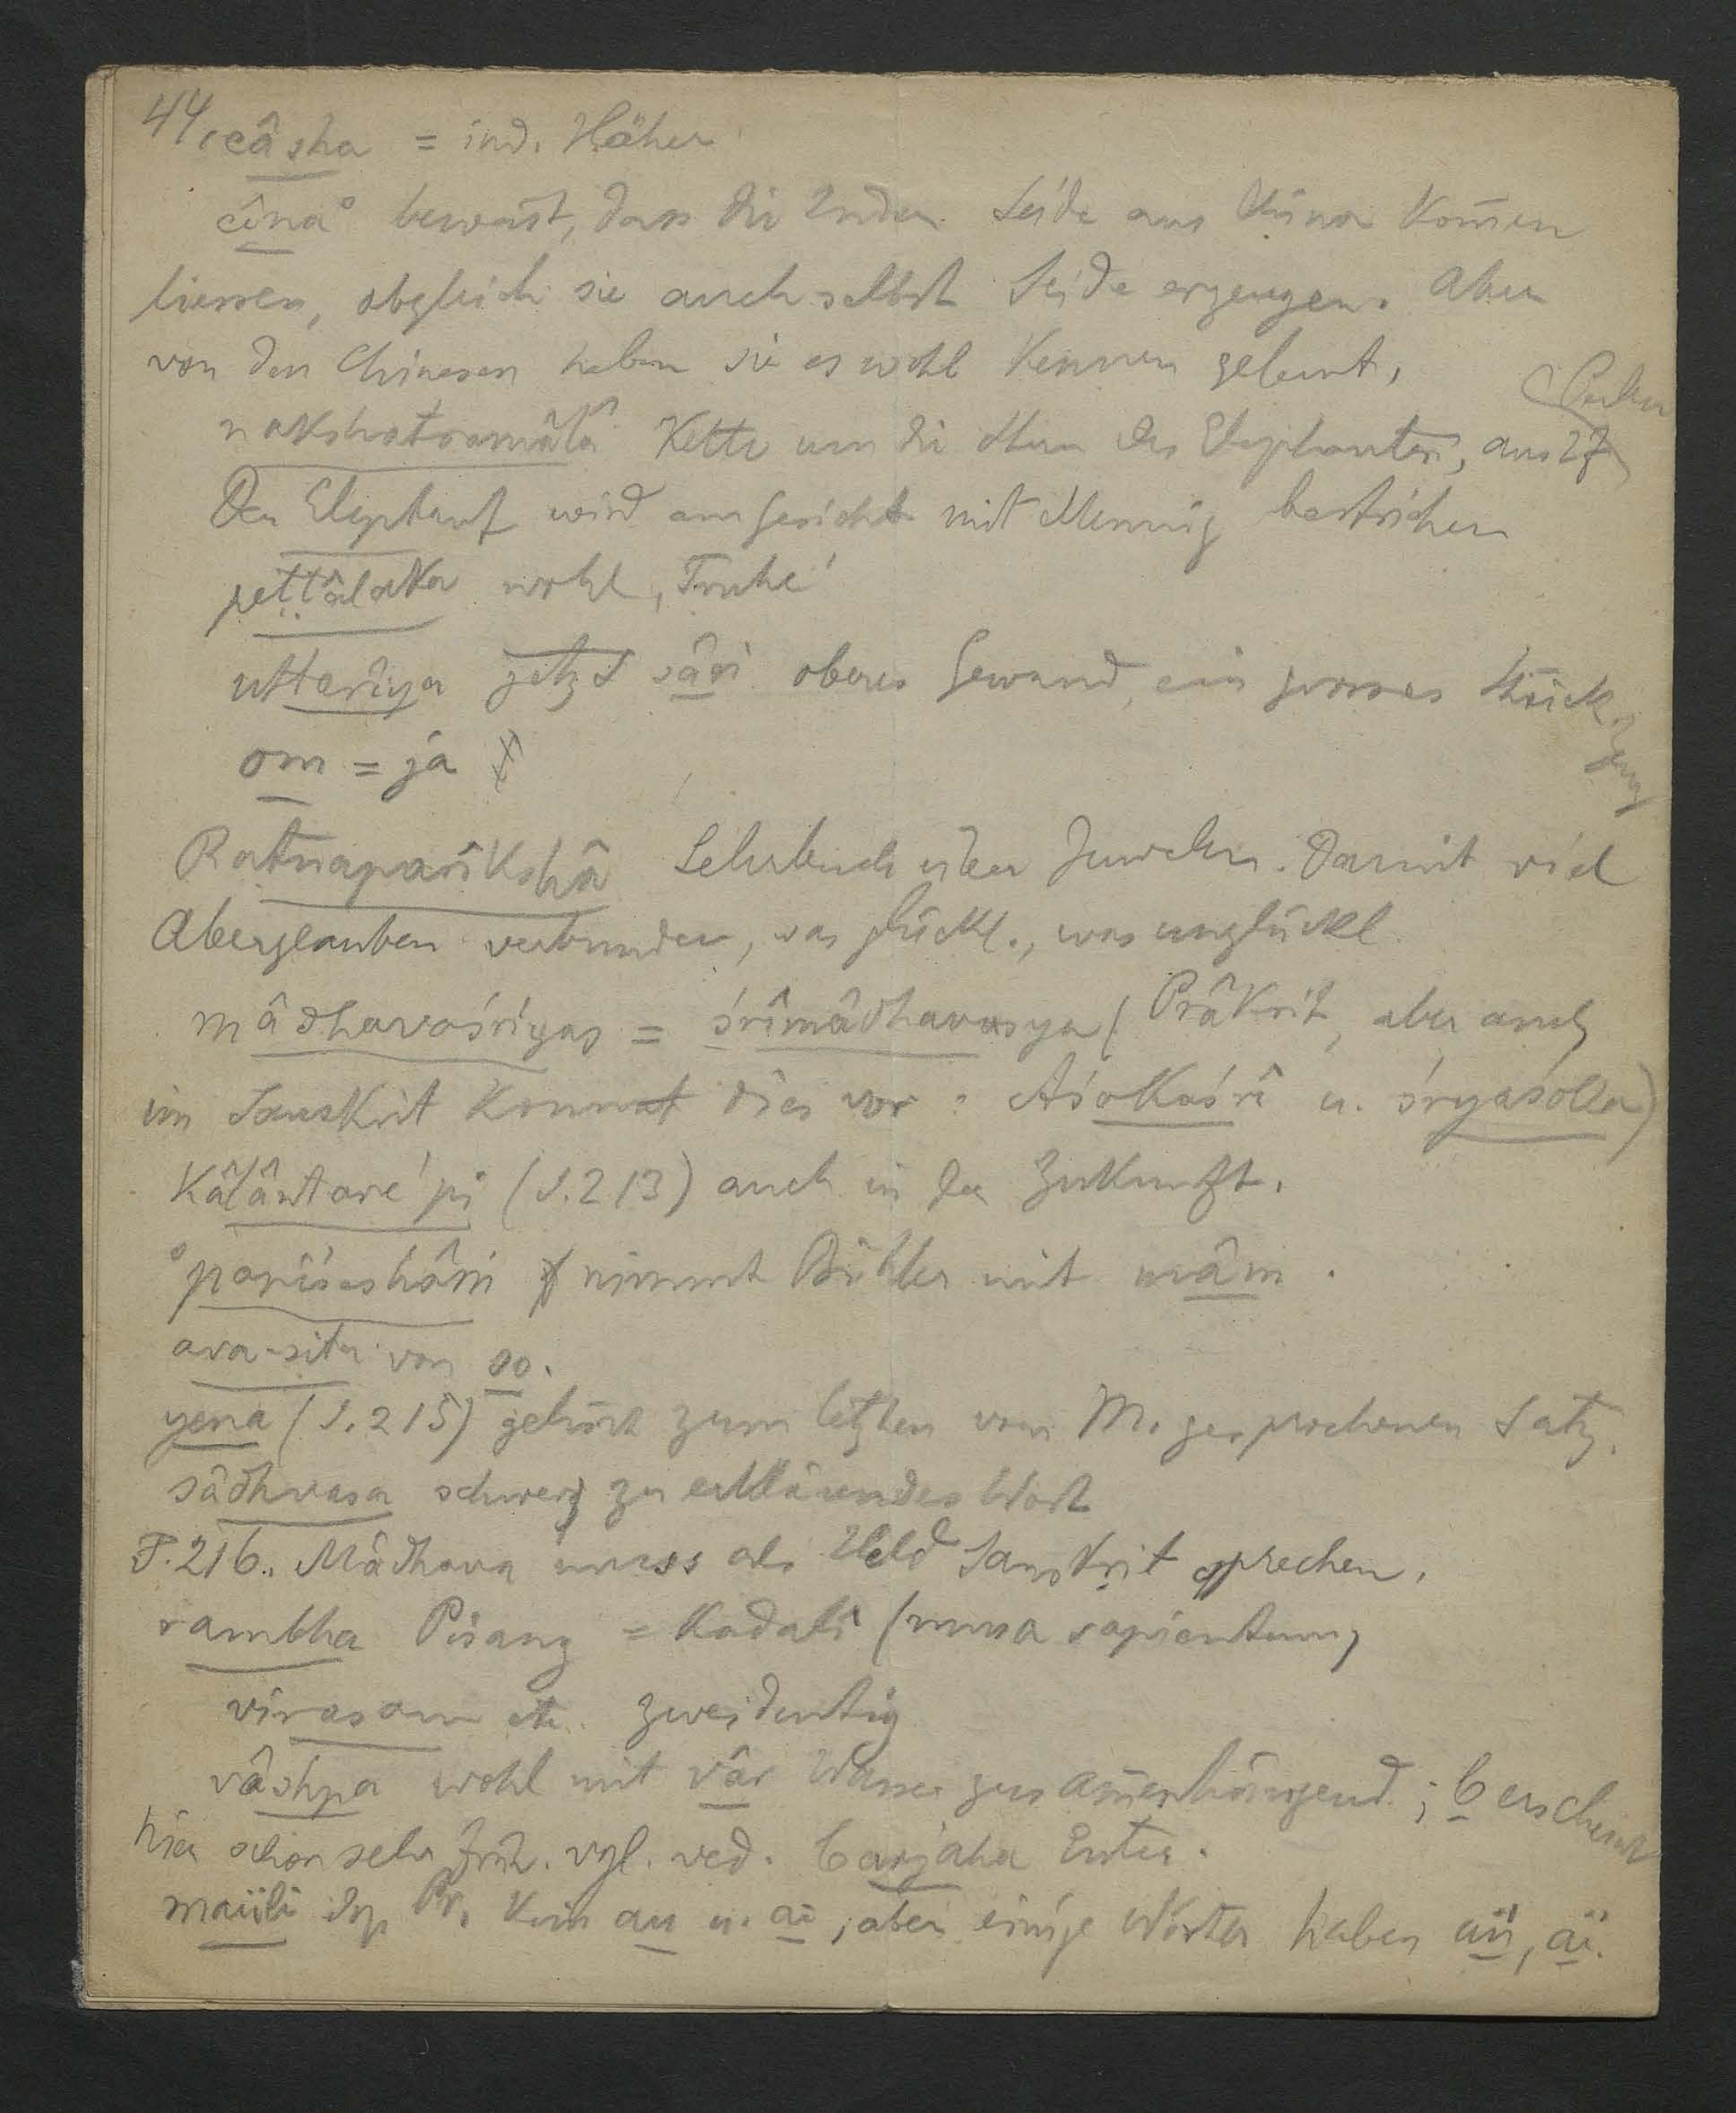 44, câsha = ind. Häher
cîna° beweist, dass die Inder Seide aus China kom̅en
liessen, obgleich sie auch selbst Seide erzeugen. Aber
von den Chinesen haben sie es wohl kennen gelernt,
nakshatramâlâ Kette um die Ohren des Elephanten, aus 27 Perlen
Der Elephant wird am Gesicht mit Mennig bestrichen
peṭṭâlaka wohl ‚Truhe'
uttarîya jetzt sâṛi oberes Gewand, ein grosses Stück Zeug
om = ja
Ratnaparîkshâ Lehrbuch über Juwelen. Damit viel
Aberglauben verbunden, was glückl., was unglückl.
mâdhavaśriyas = śrîmâdhavasya (Prâkrit, aber auch
im Sanskrit kommt dies vor: Aśokaśrî u.
kâlântare 'pi (S. 213) auch in der Zukunft.
°pariśeshâm nimmt Bühler mit mâm.
ava-sita von so.
yena (S. 215) gehört zum letzten von M. gesprochenen Satz.
sâdhvasa schwer zu erklärendes Wort
P. 216. Mâdhava muss als Held Sanskrit sprechen.
rambha Pisang = kadalî (musa sapientum)
virasam etc. zweideutig
vâshpa wohl mit vâr Wasser zusam̅enhängend; b erscheint
hier schon sehr früh. vgl. ved. Euter.
maüli Pr. kein au u. ai, aber einige Wörter haben aü, aï.